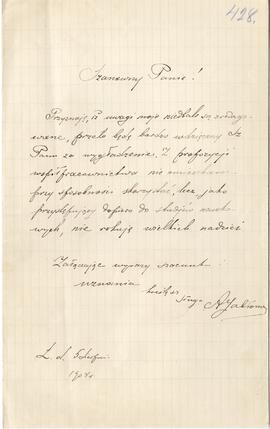 428.
Szanowny Panie!
Przyznaję, iż uwagi moje niedbale są zredago-
wane, przeto będę bardzo wdzięczny Sz.
Panu za wygładzenie. Z propozycji
współpracownictwa nie omieszkam
przy sposobności skorzystać, lecz jako
przystępujący dopiero do studjów nauko-
wych, nie rokuję wielkich nadziei
Załączając wyrazy szacunku
uznania
sługa
A.
Ł. d.
1908 r.